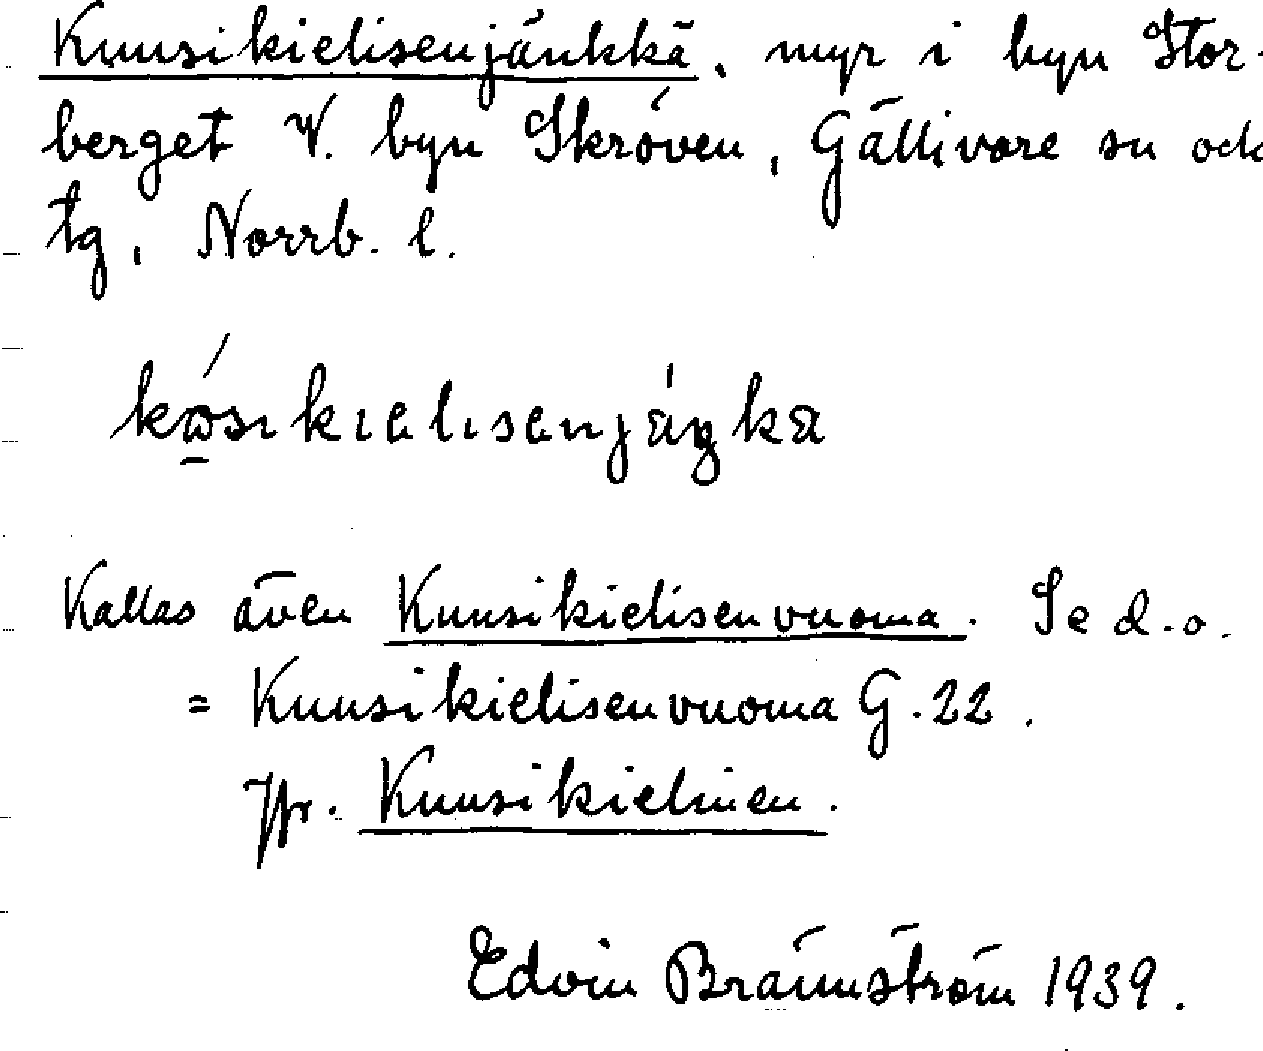 Kuusikielisenjänkkä, myr i byn Stor-
berget V. byn Skröven, Gällivare sn och
tg, Norrb. l.
Kallas även Kuusikielisenvuoma. Se d.o.
= Kuusikielisenvuoma G.22.
Jfr. Kuusikielinen.
Edvin Brännström 1939.